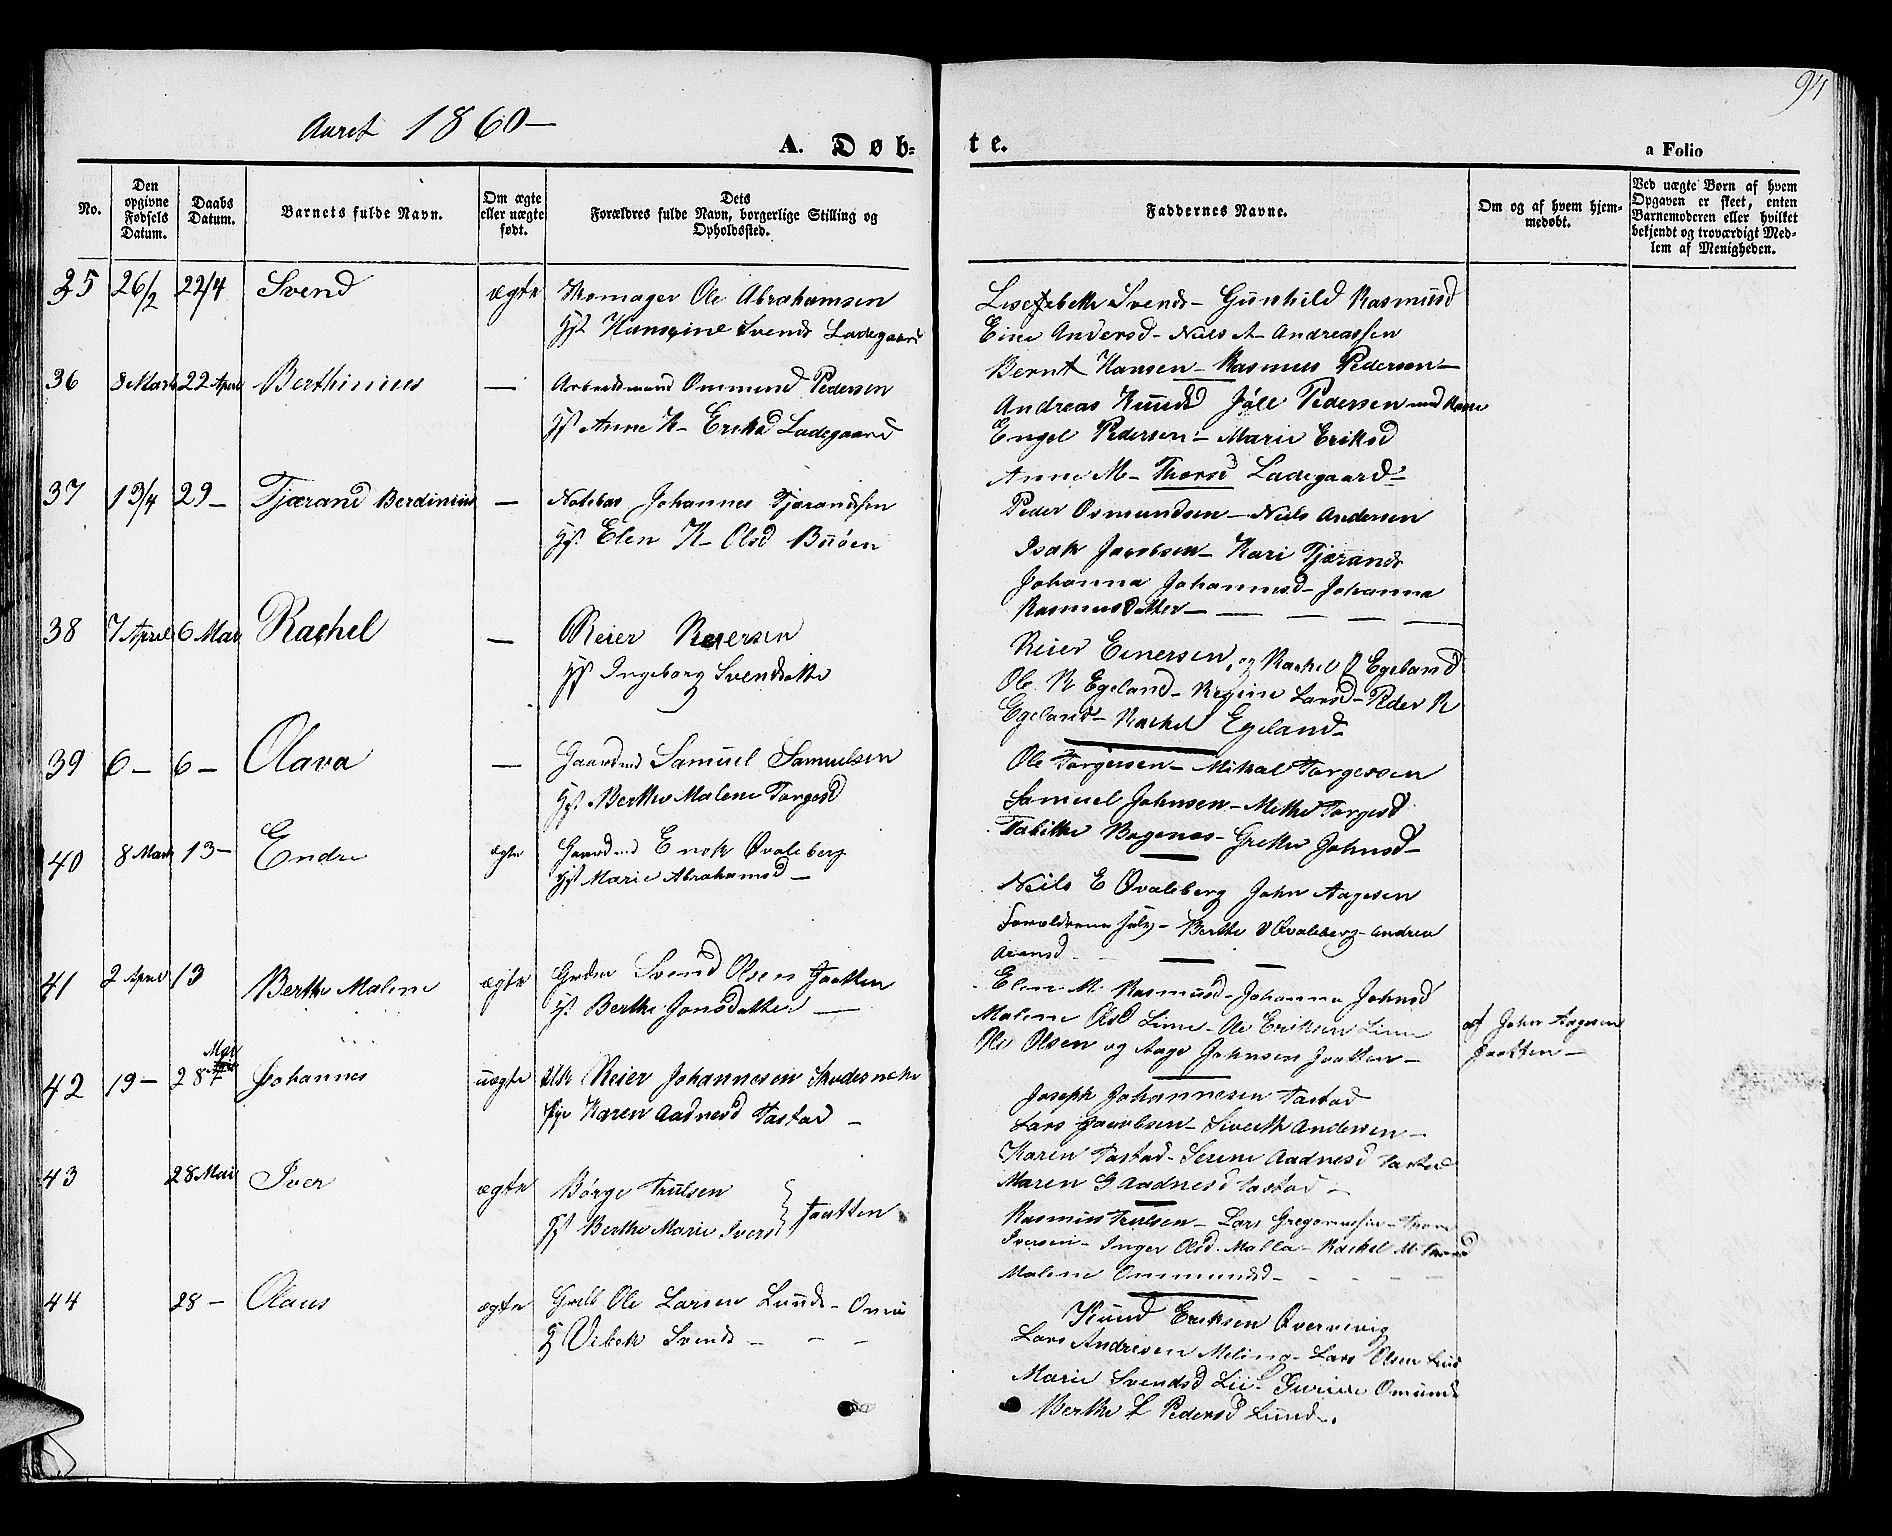 94
Aaret 1860 —
A. Døb-
te.
a Folio
No.
Den opgivne Fødsels Datum.
Daabs Datum.
Barnets fulde Navn.
Om ægte eller uægte født.
Dets Forældres fulde Navn, borgerlige Stilling og Opholdssted.
Faddernes Navne.
Om og af hvem hjem-
medøbt.
Ved uægte Børn af hvem
Opgaven er skeet, enten
Barnemoderen eller hvilket
bekjendt og troværdigt Med-
lem af Menigheden.
35 26/2 22/4 Svend ægte Skomager Ole Abrahamsen
Hansine Svends Ladegaard
Svends- Gunhild Rasmusd
Andersd- Niels A- Andreassen
Bernt Hansen- Rasmus Pedersen-
36 8 Marts 22 April Berthinius — Arbeidsmand Ommund Pedersen
Anne K- Eriksd Ladegaard
Andreas Knuds Pedersen med Kone
Engel Pedersen- Marie Eriksd
Anne M- Thorsd Ladegaard-
37 13/4 29- Tjærand Berdinius — Johannes Tjærandsen
Elen K- Olsd Buøen
Peder Osmundsen- Niels Andersen
Isak Jacobsen- Kari Tjærands
Johanna Johannesd- Johanna
Rasmusdatter-
38 7 April 6 Mai Rachel — Reier Reiersen
Ingeborg Svendsdatter
Reier Einersen, og Rachel Egeland
Ole R Egeland- Regine Larsd- Peder R
Egeland- Rachel Egeland-
39 6- 6- Olava — Gaardmd Samuel Samuelsen
Berthe Malene Torgesd
Ole Torgersen- Mikal Torgersen
Samuel Johnsen- Methe Torgesd
Tabithe Bogenæs- Grethe Johnsd-
40 8 Marts 13- Endre ægte Gaardmd Enok Qvaleberg
Marie Abrahamsd-
Neils E Qvaleberg John Aagesen
Forældrene selv- Berthe Qvaleberg- Andrea
41 2 April 13 Berthe Malene ægte Svend Olsen Jaatten
Berthe Jonsdatter-
Elen M. Rasmusd- Johanna Johnsd
Malene Olsd Lime- Ole Eriksen Lime
Ole Olsen og Aage Johnsen Jaatten-
af John Aagesen
Jaatten-
42 19- 28 Mai Johannes uægte Reier Johannesen
Pige Karen Aadnesd Tastad-
Joseph Johannesen Tastad
Lars Jacobsen- Siverth Andersen-
Karen Tastad- Serine Aadnesd Tastad
Maren G Aadnesd Tastad-
43 28 Mai Iver ægte Børge Trulsen
Berthe Marie Ivers Jaatten
Rasmus Trulsen- Lars Gregoriussen-
Iversen- Inger Olsd. Malla- Rachel M
Malene Ommundsd-
44 28- Olaus ægte Ole Larsen Lunde-
Vibek Svends-
Knud Eriksen
Lars Andresen Meling- Lars Olsen
Marie Svendsd Lie-
Berthe L Pedersd Lund-